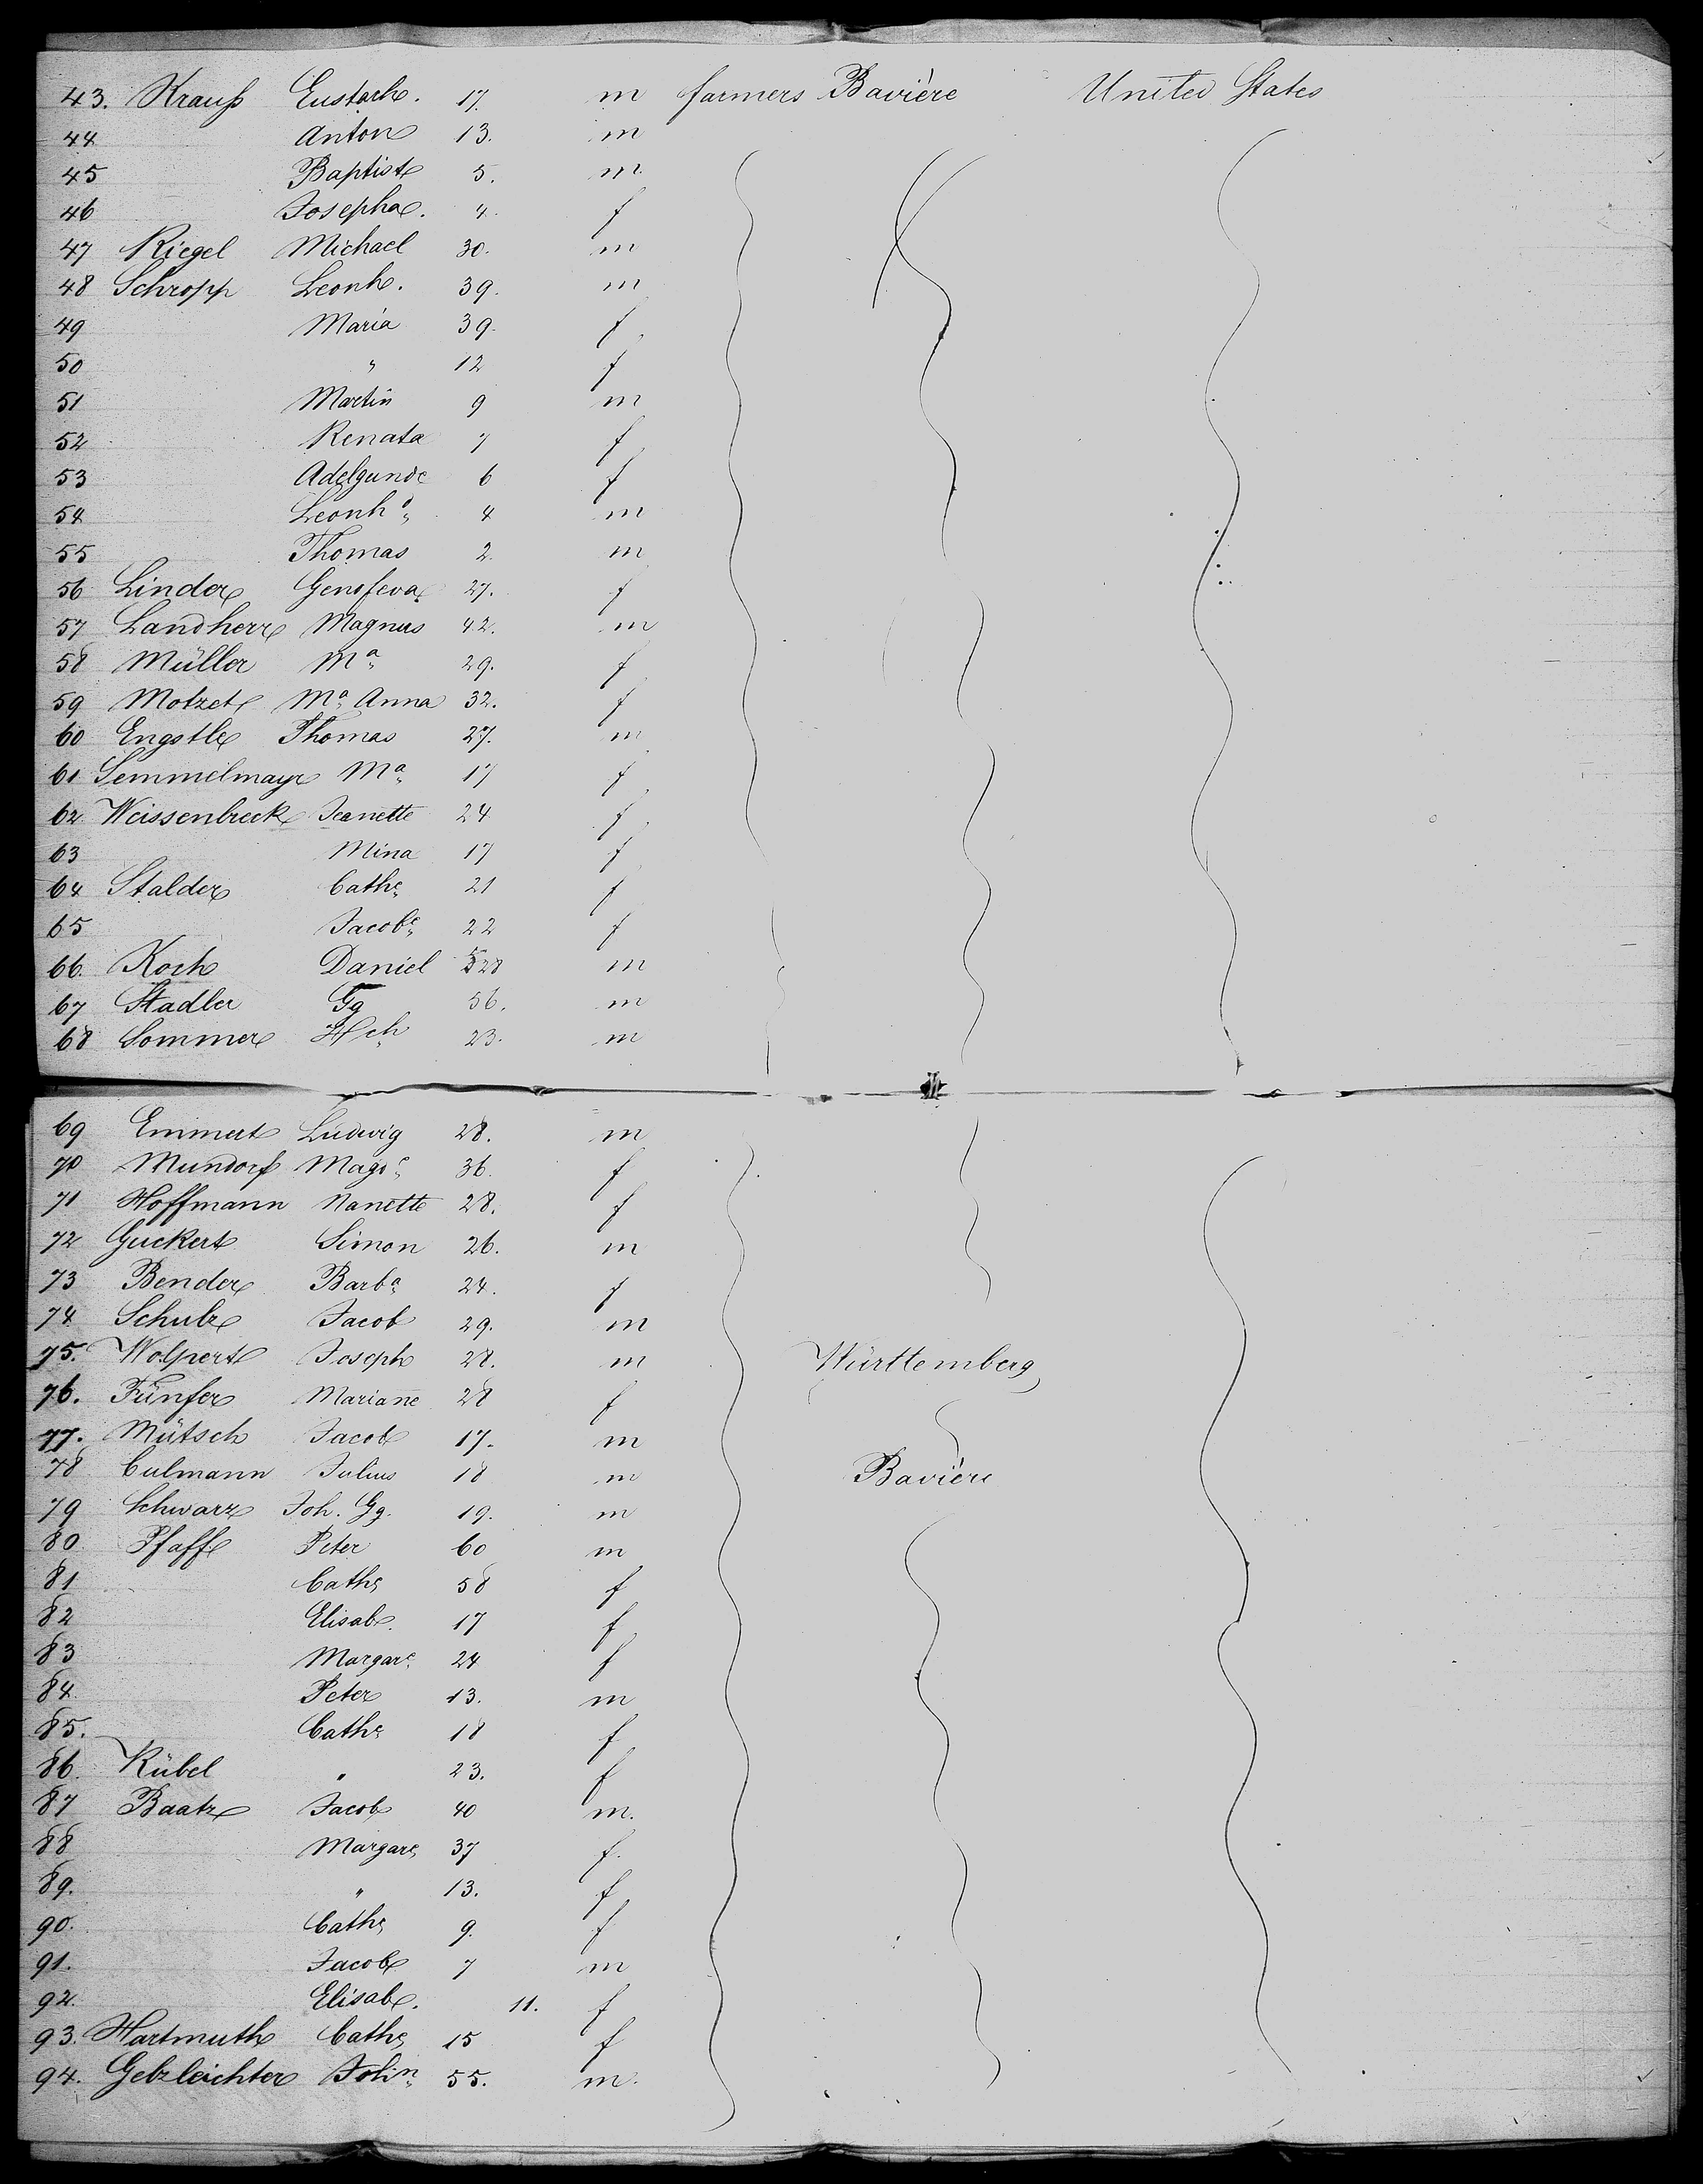 43. Krauß Eustach. 17. m farmers Bavière United States
44 Anton 13. m
45 Baptist 5. m
46 Josepha. 4. f
47 Riegel Michael 30. m
48 Schropp Leonh. 39. m
49 Maria 39. f
50 " 12 f
51 Martin 9 m
52 Renata 7 f
53 Adelgunde 6 f
54 Leonhd 4 m
55 Thomas 2. m
56 Linder Genofeva 27. f
57 Landherr Magnus 42. m
58 Müller Ma 29. f
59 Motzet Ma Anna 32. f
60 Engstle Thomas 27. m
61 Semmelmayr Ma 17 f
62 Weissenbeck Jeanette 24 f
63 Mina 17 f
64 Stalder Cathe 21 f
65 Jacobe 22 f
66. Koch Daniel 28 m
67 Stadler Gg 56. m
68 Sommer Hch 23. m
69 Emmert Ludwig 28. m
70 Mundorf Magde 36. f
71 Hoffmann Nanette 28. f
72 Guckert Simon 26. m
73 Bender Barba 24. f
74 Schulz Jacob 29. m
75. Wolpert Joseph 28. m Württemberg
76. Fünfer Mariane 28 f
77. Mütsch Jacob 17. m
78 Culmann Julius 18 m Bavière
79 Schwarz Joh. Gg. 19. m
80 Pfaff Peter 60 m
81 Cathe 58 f
82 Elisab. 17 f
83 Margare 24 f
84. Peter 13. m
85. Cathe 18 f
86. Kübel " 23. f
87 Baatz Jacob 40 m.
88 Margare 37 f.
89. " 13. f
90. Cathe 9. f
91. Jacob 7 m
92. Elisab. 11. f
93. Hartmuth Cathe 15 f
94. Gelzleichter John 55. m.